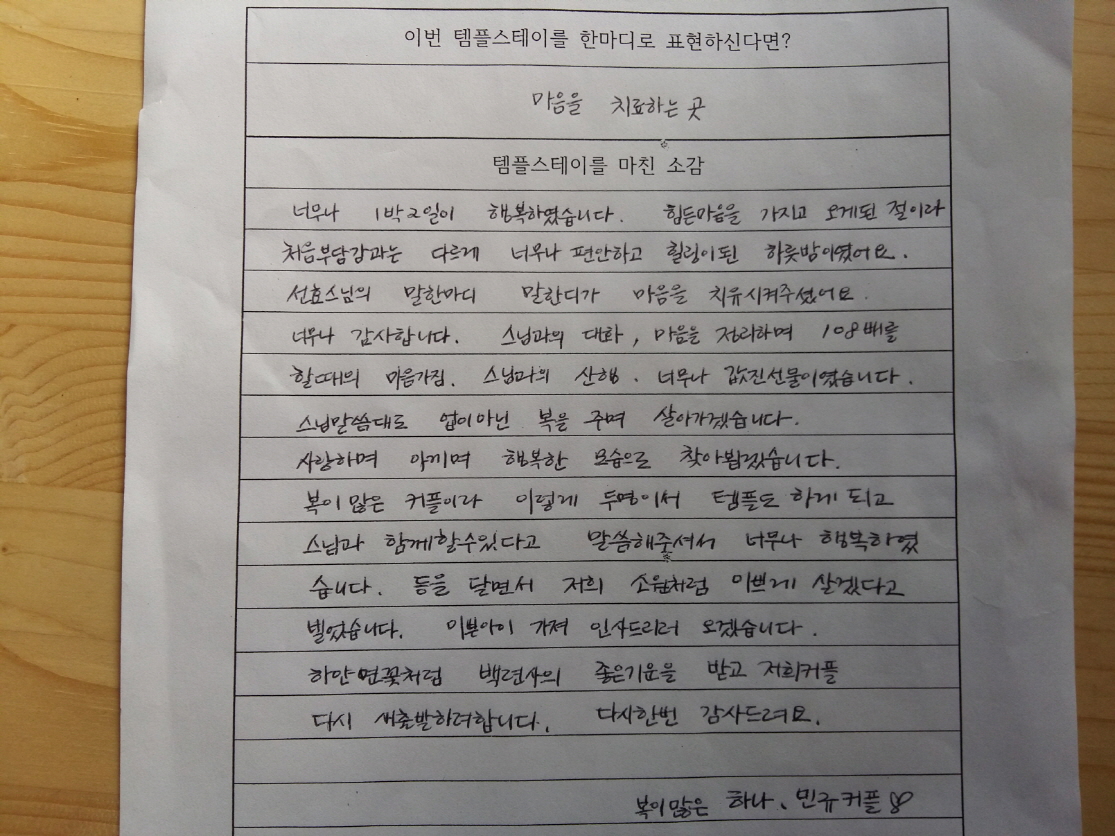 이번 템플스테이를 한마디로 표현하신다면?
마음을 치료하는 곳
템플스테이를 마친 소감
너무나 1박2일이 행복하였습니다. 힘든마음을 가지고 오게된 절이라
처음부담감과는 다르게 너무나 편안하고 힐링이된 하룻밤이였어요.
선효스님의 말한마디 말한디가 마음을 치유시켜주셨어요.
너무나 감사합니다. 스님과의 대화, 마음을 정리하며 108배를
할때의 마음가짐. 스님과의 산행. 너무나 값진선물이였습니다.
스님말씀대로 업이아닌 복을 주며 살아가겠습니다.
사랑하며 아끼며 행복한 모습으로 찾아뵙겠습니다.
복이많은 커플이라 이렇게 두명이서 템플도 하게 되고
스님과 함께할수있다고 말씀해주셔서 너무나 행복하였
습니다. 등을 달면서 저희 소원처럼 이쁘게 살겠다고
빌었습니다. 이쁜아이 가져 인사드리러 오겠습니다.
하얀연꽃처럼 백련사의 좋은기운을 받고 저희커플
다시 새출발하려합니다. 다시한번 감사드려요.
복이많은 하나, 민규커플